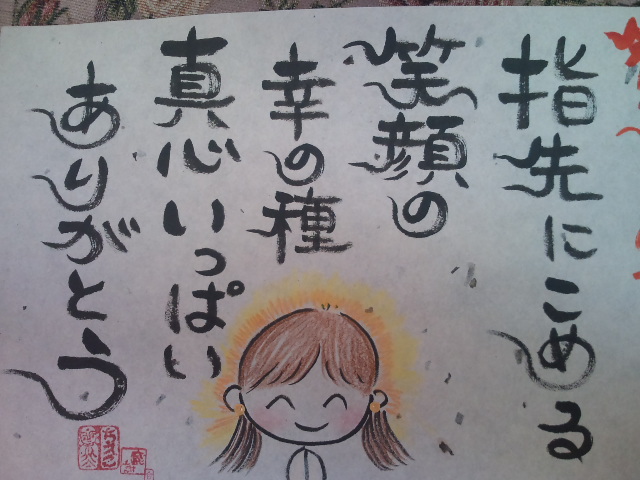 指先にこめる
笑顔の
幸の種
真心いっぱい
ありがとう